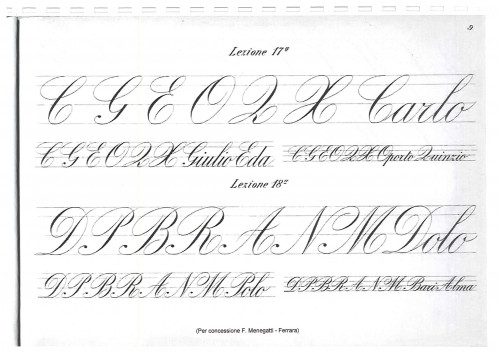 9
Lezione 17ª
C G E O Q X Carlo
C G E O Q X Giulio Eda C G E O Q X Oporto Quinzio
Lezione 18ª
D P B R A N M Dolo
D P B R A N M Polo D P B R A N M Bari Alma
(Per concessione F. Menegatti - Ferrara)